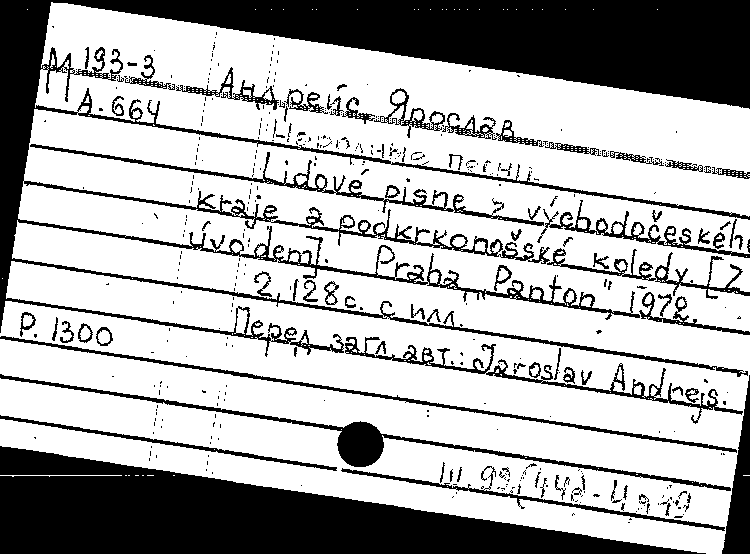 М 193-3
А.664
Андрейс, Ярослав
Народные песни.
Lidové pisne z východočeského
kraje a podkrkonošské koledy. [Z
úvodem]. Praha, "Panton", 1972.
2, 128 с. с илл.
Перед загл. авт.: Jaroslav Andrejs.
Р. 1300